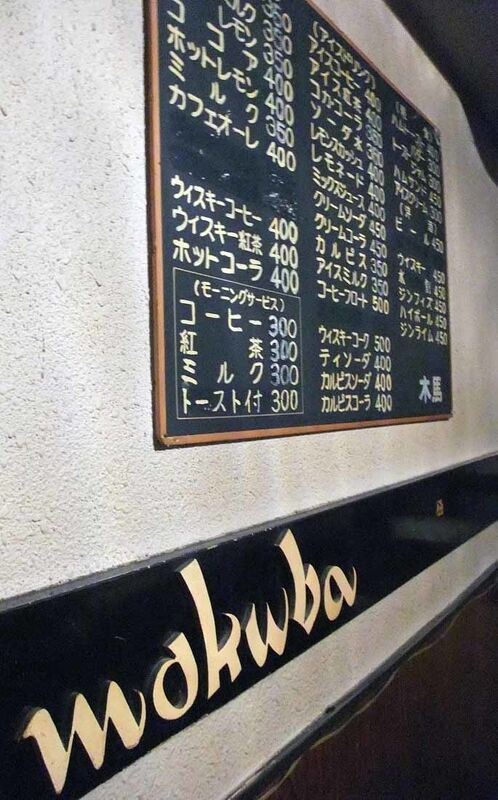 ココア 350
ホットレモン 400
ミルク 350
カフェオーレ 400
ウィスキーコーヒー 400
ウィスキー紅茶 400
ホットコーラ 400
(モーニングサービス)
コーヒー 300
紅茶 300
ミルク 300
トースト付 300
(アイスドリンク)
アイスコーヒー 400
アイス紅茶 400
コカ・コーラ 400
ソーダ水 350
レモンスカッシュ 400
レモネード 400
ミックスジュース 400
クリームソーダ 450
クリームコーラ 450
カルピス 350
アイスミルク 350
コーヒフロート 500
ウィスキーコーク 500
ティソーダ 400
カルピスソーダ 400
カルピスコーラ 400
ビール 450
ウイスキー 450
水割 450
ジンフィズ 450
ハイボール 450
ジンライム 450
木馬
mokuba